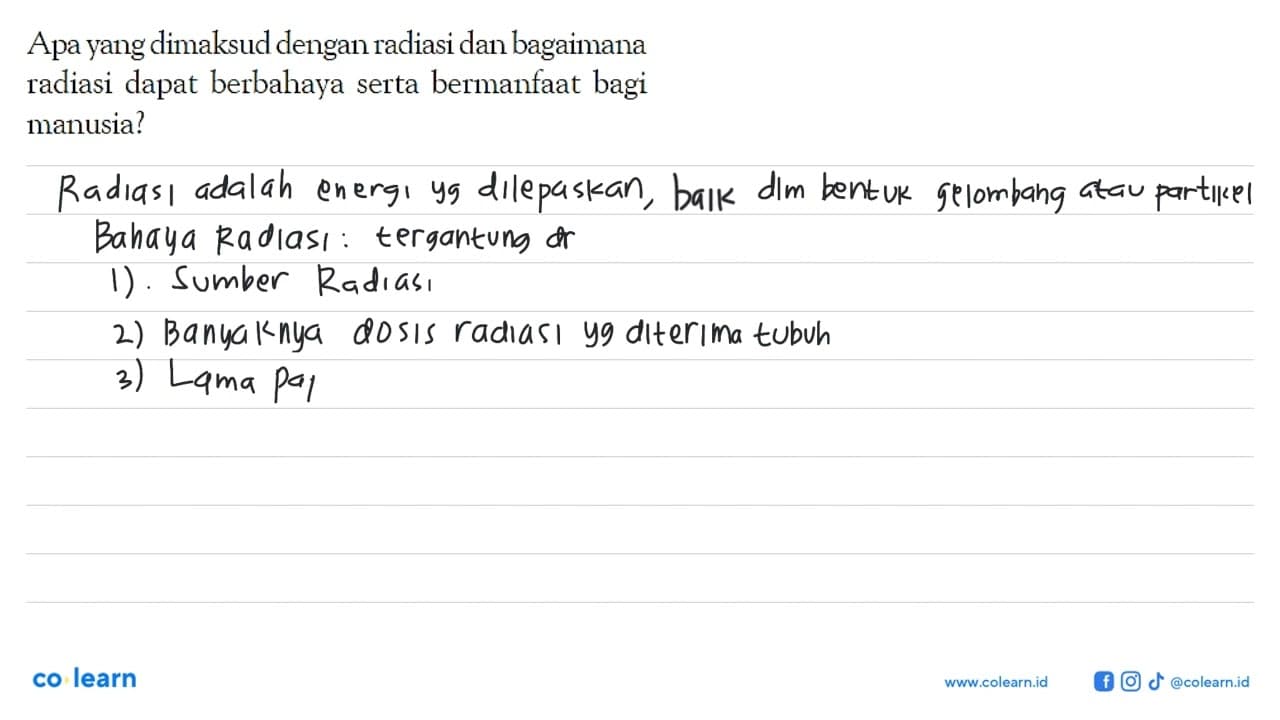 Apa yang dimaksud dengan radiasi dan bagaimana
radiasi dapat berbahaya serta bermanfaat bagi
manusia?
Radiasi adalah energi yg dilepaskan, baik dlm bentuk gelombang atau partikel
Bahaya Radiasi: tergantung dr
1). Sumber Radiasi
2) Banyaknya dosis radiasi yg diterima tubuh
3) Lama paj
co learn
www.colearn.id @colearn.id